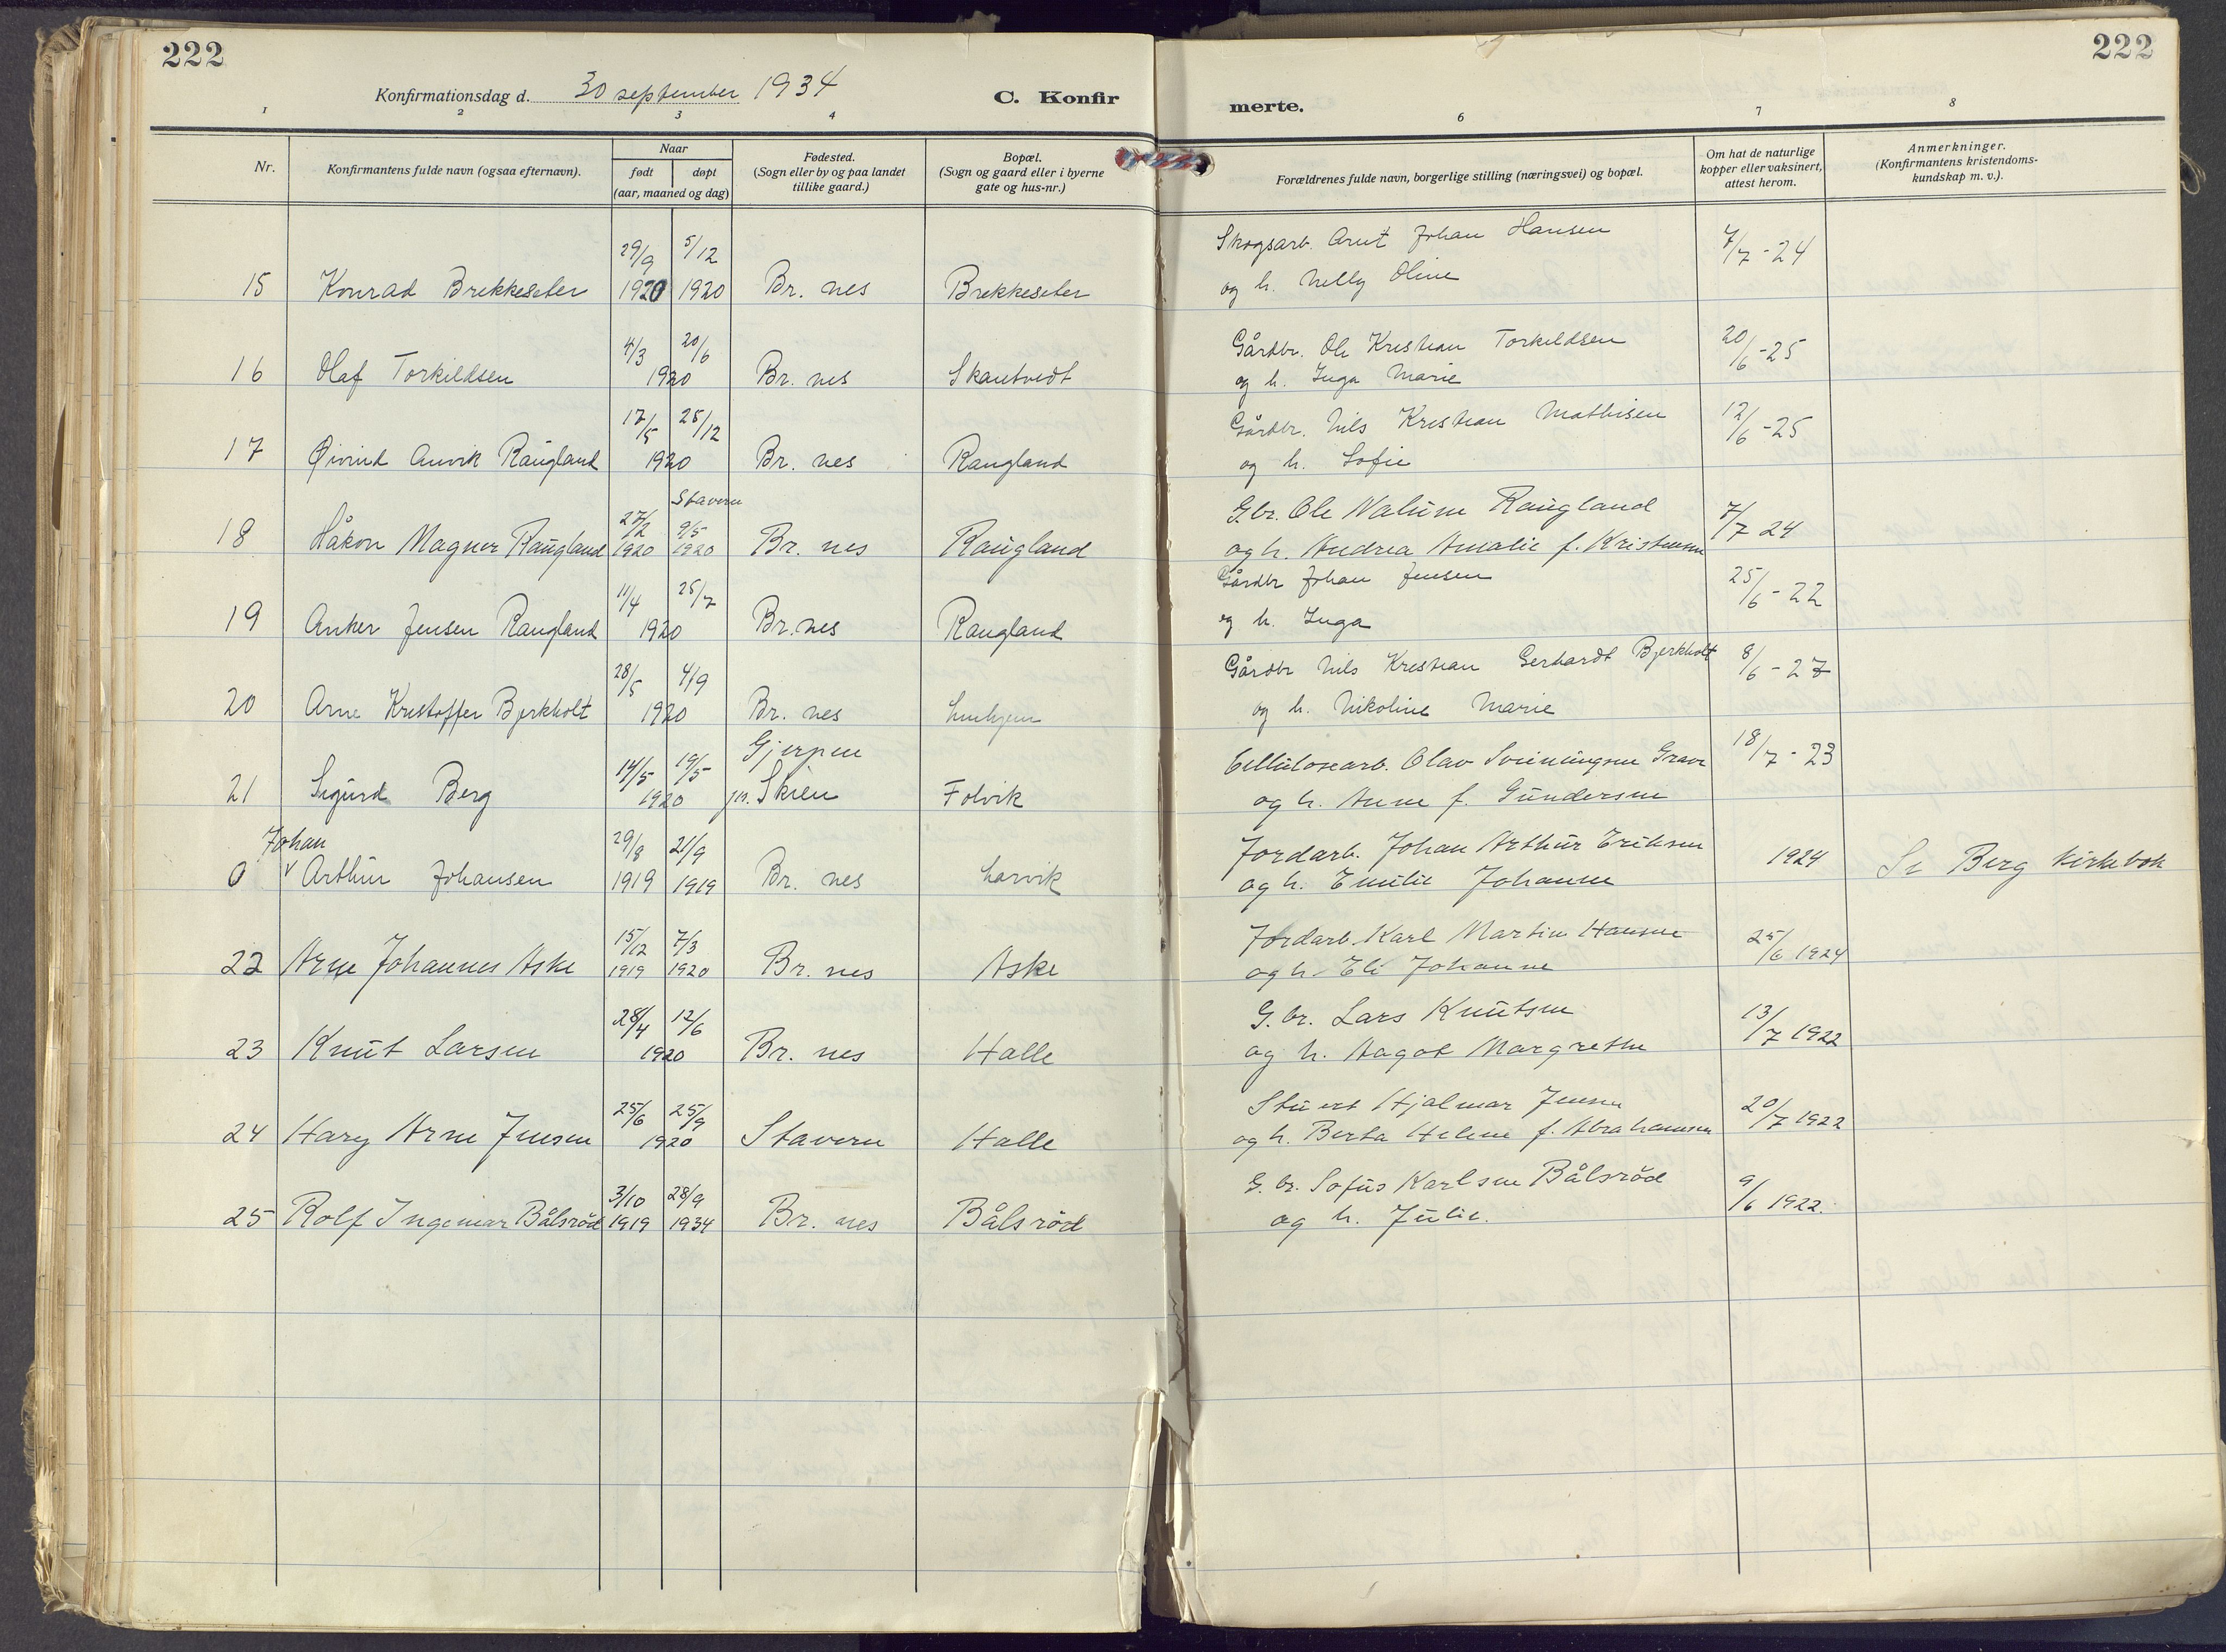 222
222
Konfirmationsdag d. 30 september 1934
C. Konfirmerte.
1 2 3 4 6 7 8
Nr.
Konfirmantens fulde navn (ogsaa efternavn).
Naar
født døpt
(aar, maaned og dag)
Fødested.
(Sogn eller by og paa landet
tillike gaard.)
Bopæl.
(Sogn og gaard eller i byerne
gate og hus-nr.)
Forældrenes fulde navn, borgerlige stilling (næringsvei) og bopæl.
Om hat de naturlige
kopper eller vaksinert,
attest herom.
Anmerkninger.
(Konfirmantens kristendoms-
kundskap m. v.).
29/9 5/12 Skogsarb. Arnt Johan Hansen 7/7 - 24
15 Konrad Brekkeseter 1920 1920 Br. nes Brekkeseter og h. Nelly Oline
4/3 20/6 Gårdbr. Ole Kristian Torkildsen 20/6 - 25
16 Olaf Torkildsen 1920 Br. nes Skautvedt og h. Inga Marie
17/5 25/12 Gårdbr. Nils Kristian Mathisen 12/6 - 25
17 Øivind Anvik Raugland 1920 Br. nes Raugland og h. Sofie
Stavern
27/2 9/5 G.br. Ole Walum Raugland 7/7 24
18 Håkon Magner Raugland 1920 1920 Br. nes Raugland og h. Andrea Amalie f. Kristensen
11/4 25/7 Gårdbr Johan Jensen 25/6 - 22
19 Anker Jensen Raugland 1920 Br. nes Raugland og h. Inga
28/5 4/9 Gårdbr Nils Kristian Gerhardt Bjerkholt 8/6 - 27
20 Arne Kristoffer Bjerkholt 1920 Br. nes og h. Nikoline Marie
14/5 19/5 Gjerpen Cellulosearb. Olav Sveinungsen Grave 18/7 - 23
21 Sigurd Berg 1920 Skien Folvik og h. Anne f. Gundersen
Johan 29/8 21/9 Jordarb. Johan Arthur Eriksen 1924 Se Berg kirkebok
0 v Arthur Johansen 1919 1919 Br. nes Larvik og h. Emilie Johanne
15/12 7/3 Jordarb. Karl Martin Hansen 25/6 1924
22 Arne Johannes Aske 1919 1920 Br. nes Aske og h. Eli Johanne
28/4 12/6 G. br. Lars Knutsen 13/7 1922
23 Knut Larsen 1920 Br. nes Halle og h. Aagot Margrethe
25/6 25/9 Stuert Hjalmar Jensen 20/7 1922
24 Hary Arne Jensen 1920 Stavern Halle og h. Berta Helene f. Abrahamsen
3/10 28/9 G. br. Sofus Karlsen Bålsröd 9/6 1922.
25 Rolf Ingemar Bålsröd 1919 1934 Br. nes Bålsröd og h. Julie.